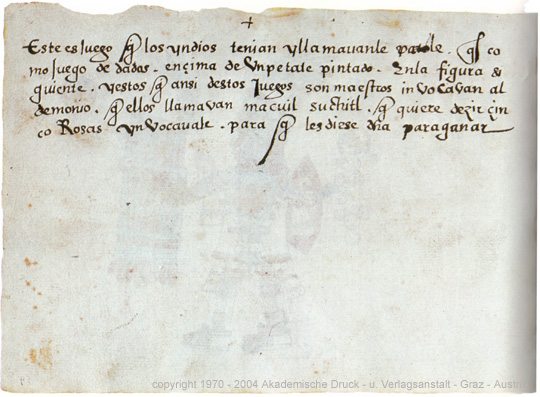 +
Este es Juego q̃ los yndios tenian y llamavanle patole. q̃s co
mo Juego de dadas. ençima de Un petate pintado. En la figura si
guiente. y estos q̃ ansi destos Juegos son maestros in vocavan al
demonio. q̃ ellos llamavan macuil suchitl. q̃ quiere dezir çin
co Rosas yn vocavale. para q̃ les diese dĩa para ganar
copyright 1970 - 2004 Akademische Druck - u. Verlagsanstalt - Graz - Austri